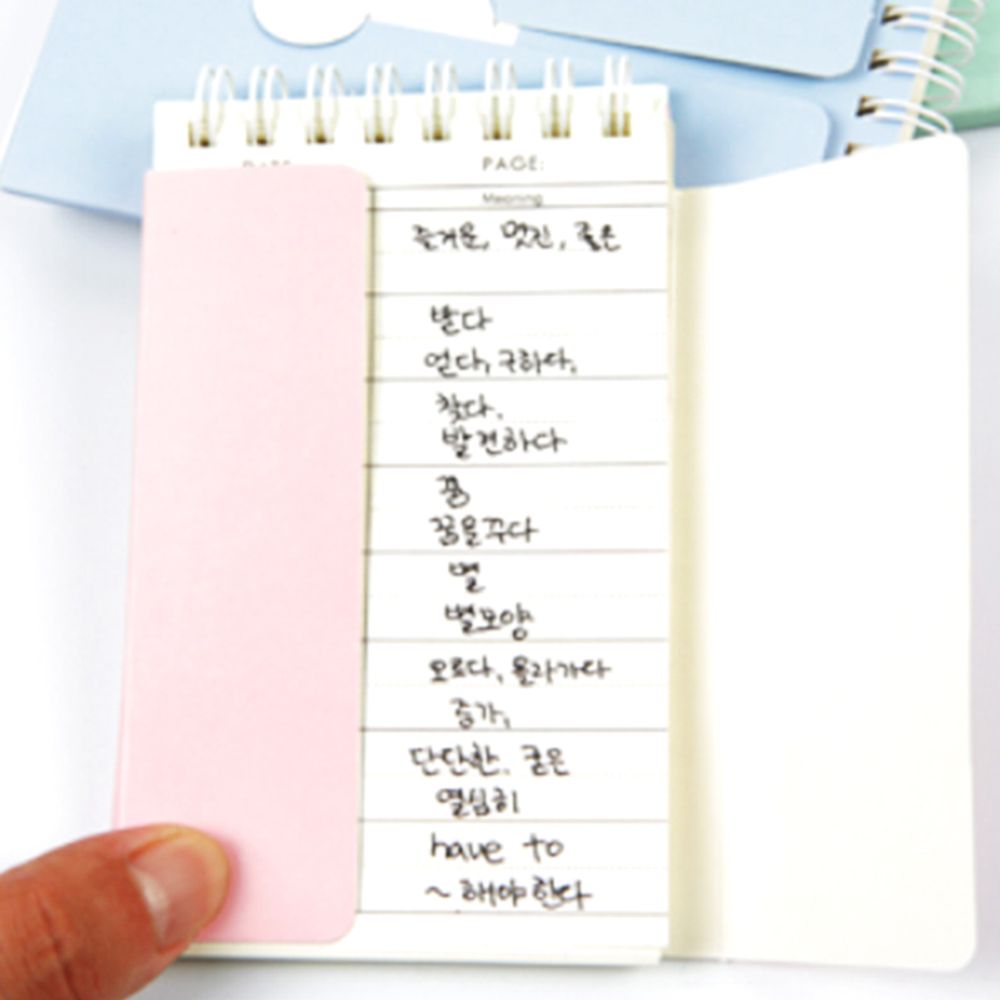 PAGE:
Meaning
즐거운, 멋진, 좋은
받다
얻다, 구하다,
찾다.
발견하다
꿈
꿈을꾸다
별
별모양
오르다, 올라가다
증가,
단단한. 굳은
열심히
have to
~ 해야 한다